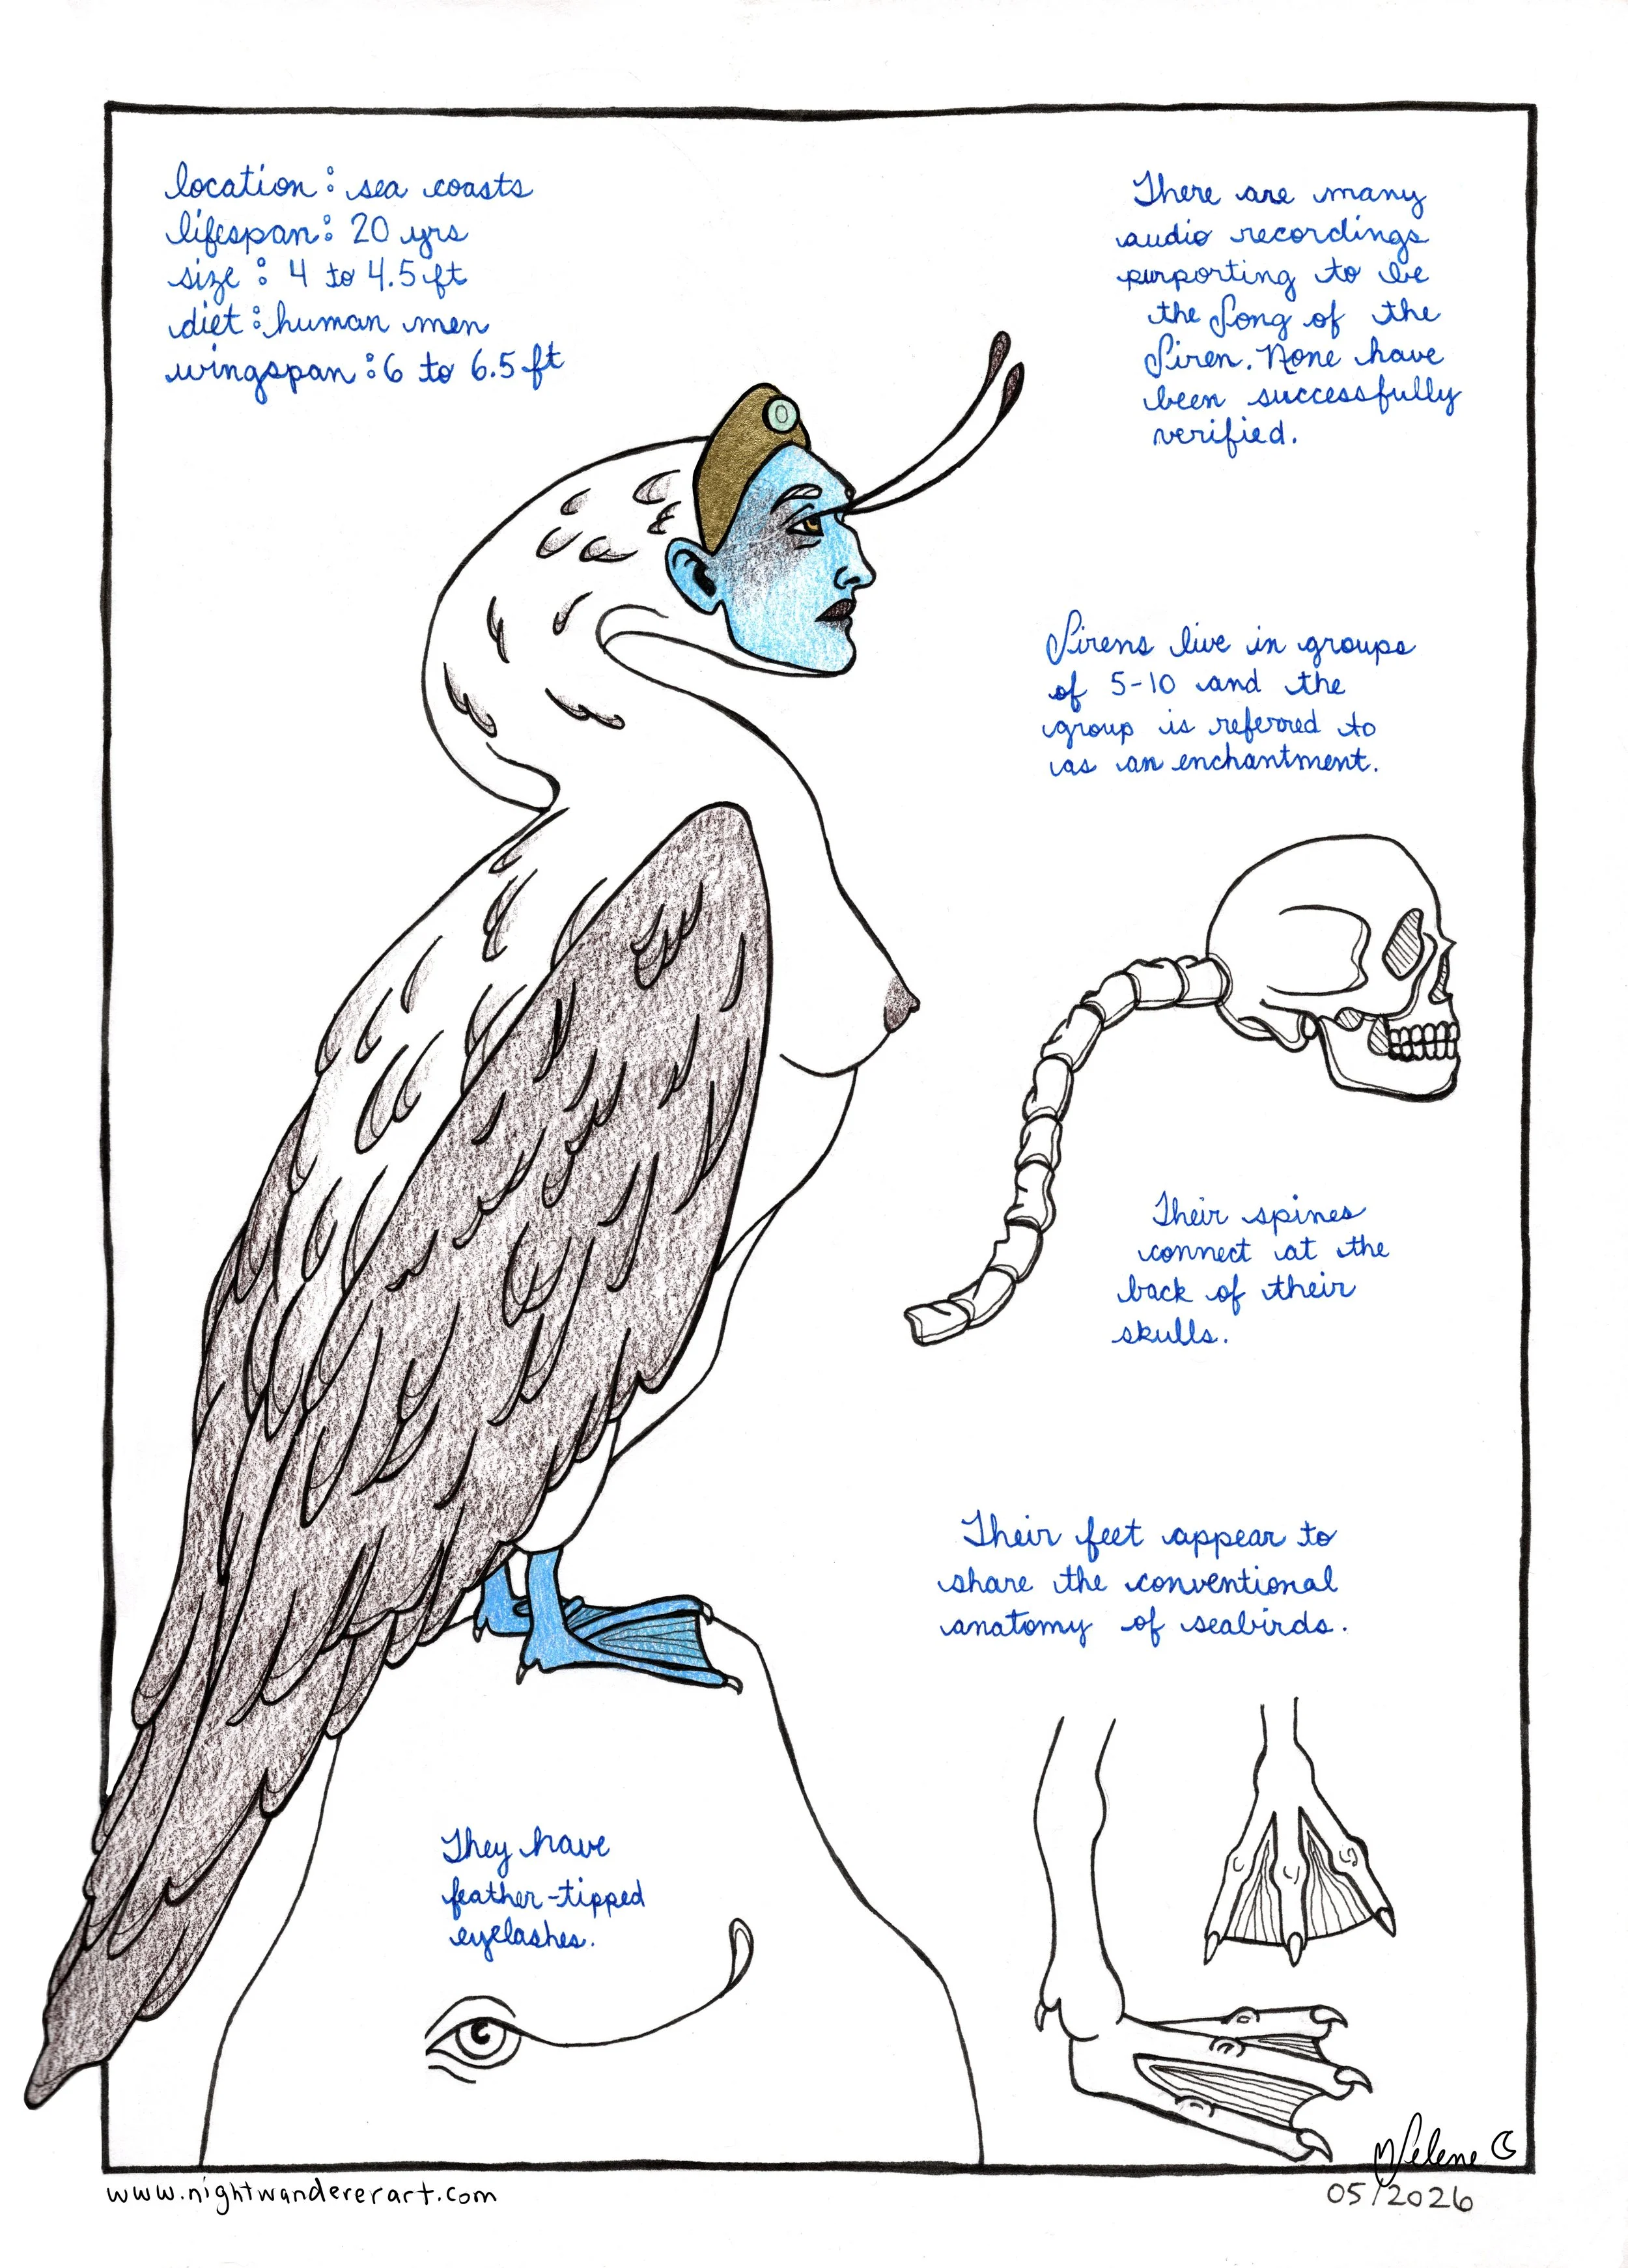 location: sea coasts
lifespan: 20 yrs
size: 4 to 4.5 ft
diet: human men
wingspan: 6 to 6.5 ft
There are many
audio recordings
purporting to be
the Song of the
Siren. None have
been successfully
verified.
Sirens live in groups
of 5-10 and the
group is referred to
as an enchantment.
Their spines
connect at the
back of their
skulls.
Their feet appear to
share the conventional
anatomy of seabirds.
They have
feather-tipped
eyelashes.
MSelene
www.nightwandererart.com
05/2026